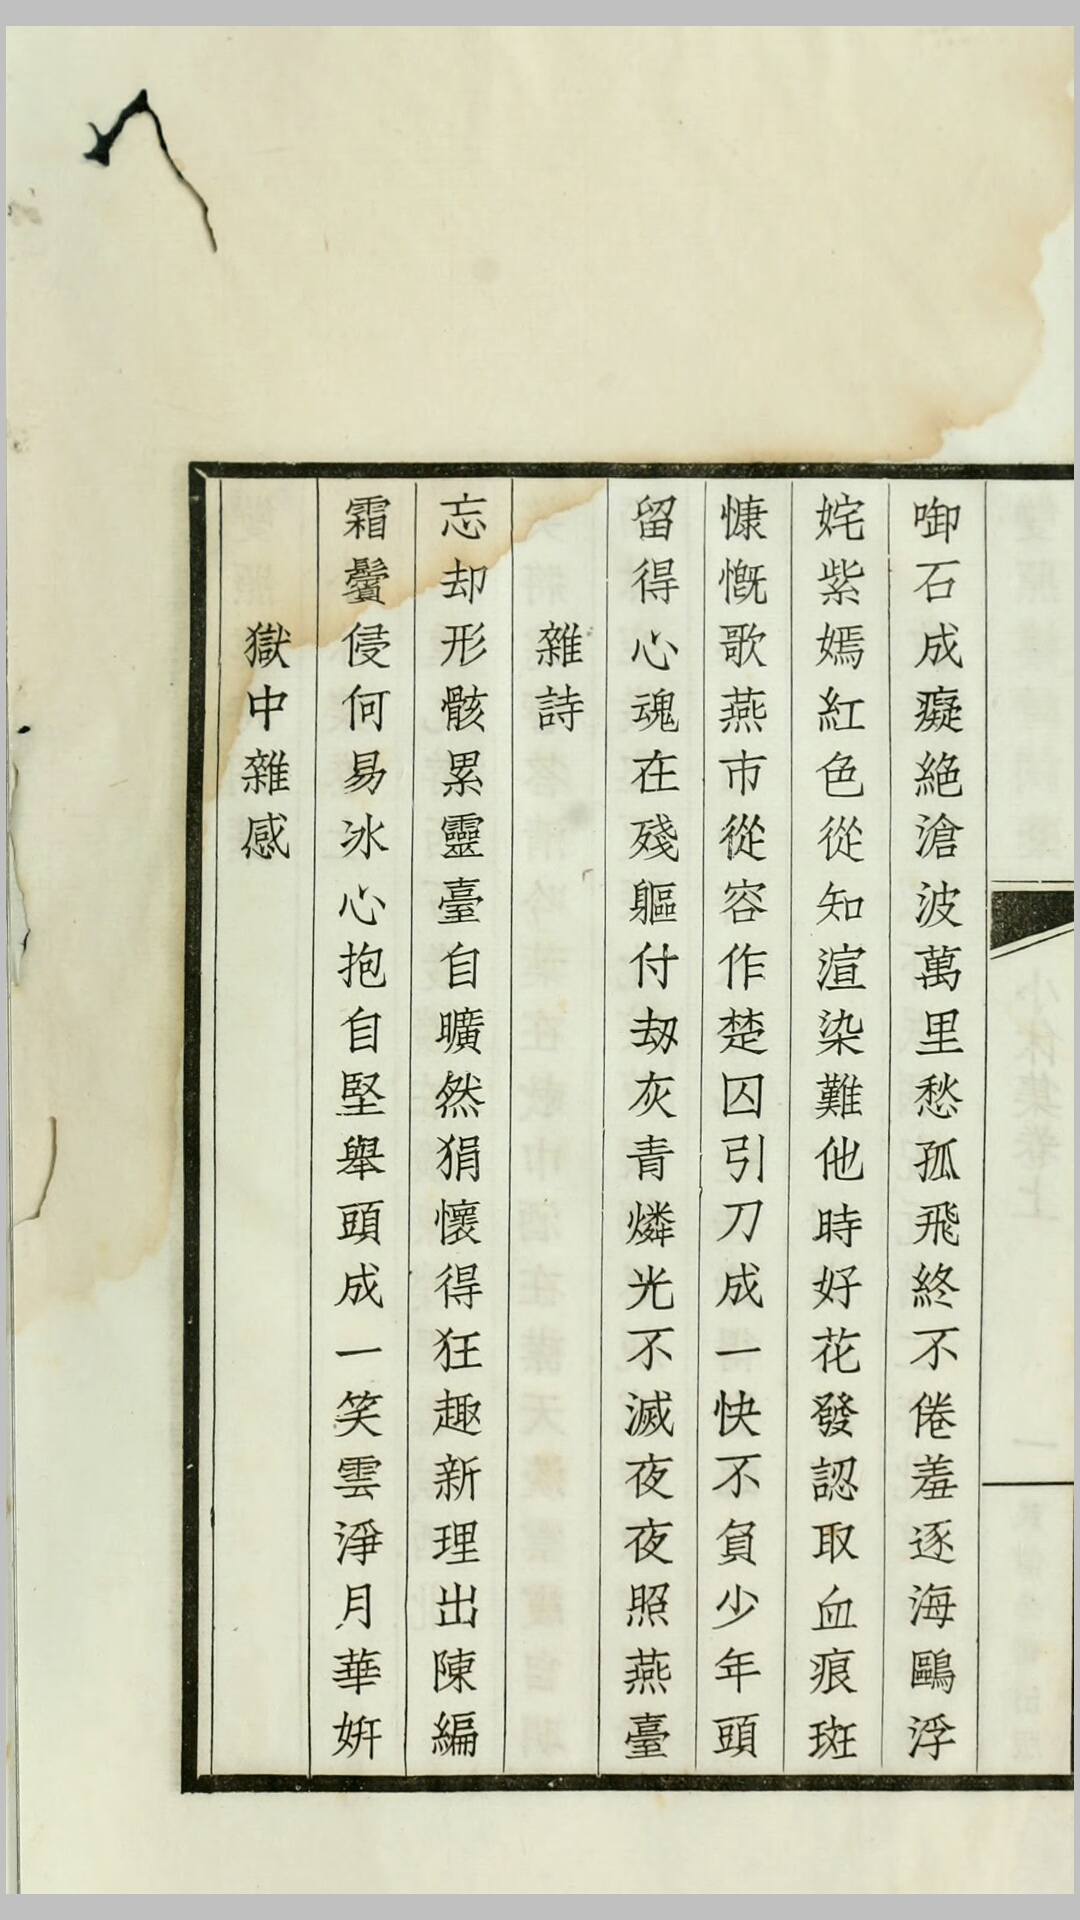 啣石成癡絕滄波萬里愁孤飛終不倦羞逐海鷗浮
姹紫嫣紅色從知渲染難他時好花發認取血痕斑
慷慨歌燕市從容作楚囚引刀成一快不負少年頭
留得心魂在殘軀付劫灰青燐光不滅夜夜照燕臺
雜詩
忘却形骸累靈臺自曠然狷懷得狂趣新理出陳編
霜鬢侵何易冰心抱自堅舉頭成一笑雲淨月華妍
獄中雜感